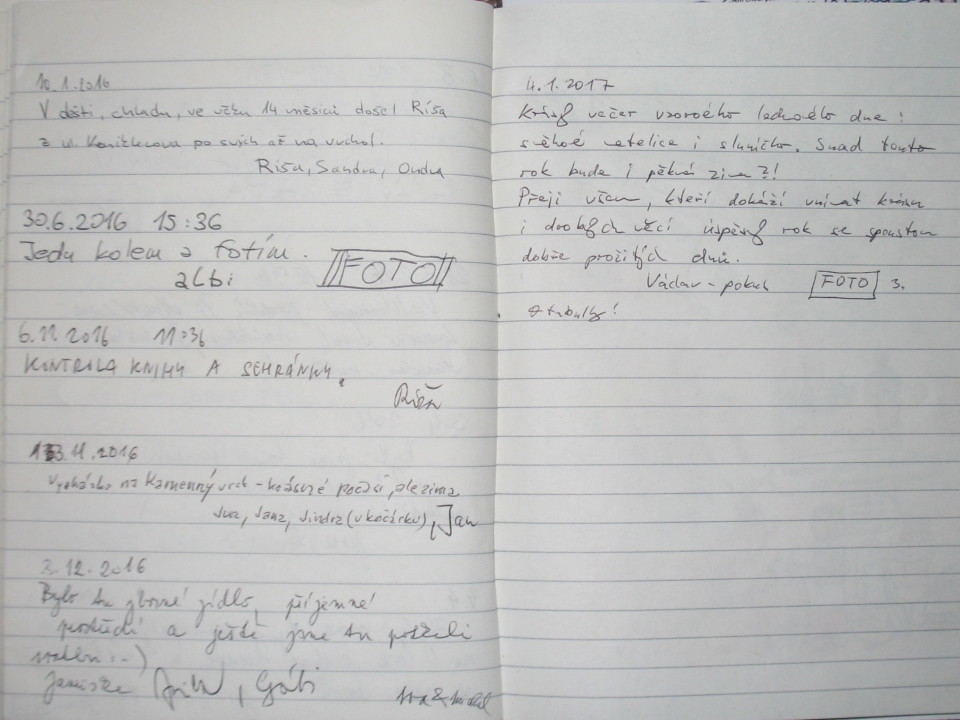 10.1.2016
V dešti, chladu, ve věku 14 měsíců došel Ríša
z ul. po svých až na vrchol.
Ríša, Sandra, Ondra
30.6.2016 15:36
Jedu kolem a fotím.
albi
FOTO
6.11.2016 11:36
KONTROLA KNIHY A SCHRÁNKY.
13.11.2016
Vycházka na Kamenný vrch - krásné počasí, ale zima
Jana, Jindra (v kočárku), Jan
3.12.2016
Bylo tu výborné jídlo, příjemné
prostředí a ještě jsme tu potkali
:-)
4.1.2017
Krásný večer vzorového lednového dne:
sněhové vetelice i sluníčko. Snad tento
rok bude i pěkná zima?!
Přeji všem, kteří dokáží vnímat krásu
i drobných věcí úspěšný rok se spoustou
dobře prožitých dnů.
Václav - pokus
FOTO 3.
z tabulky!